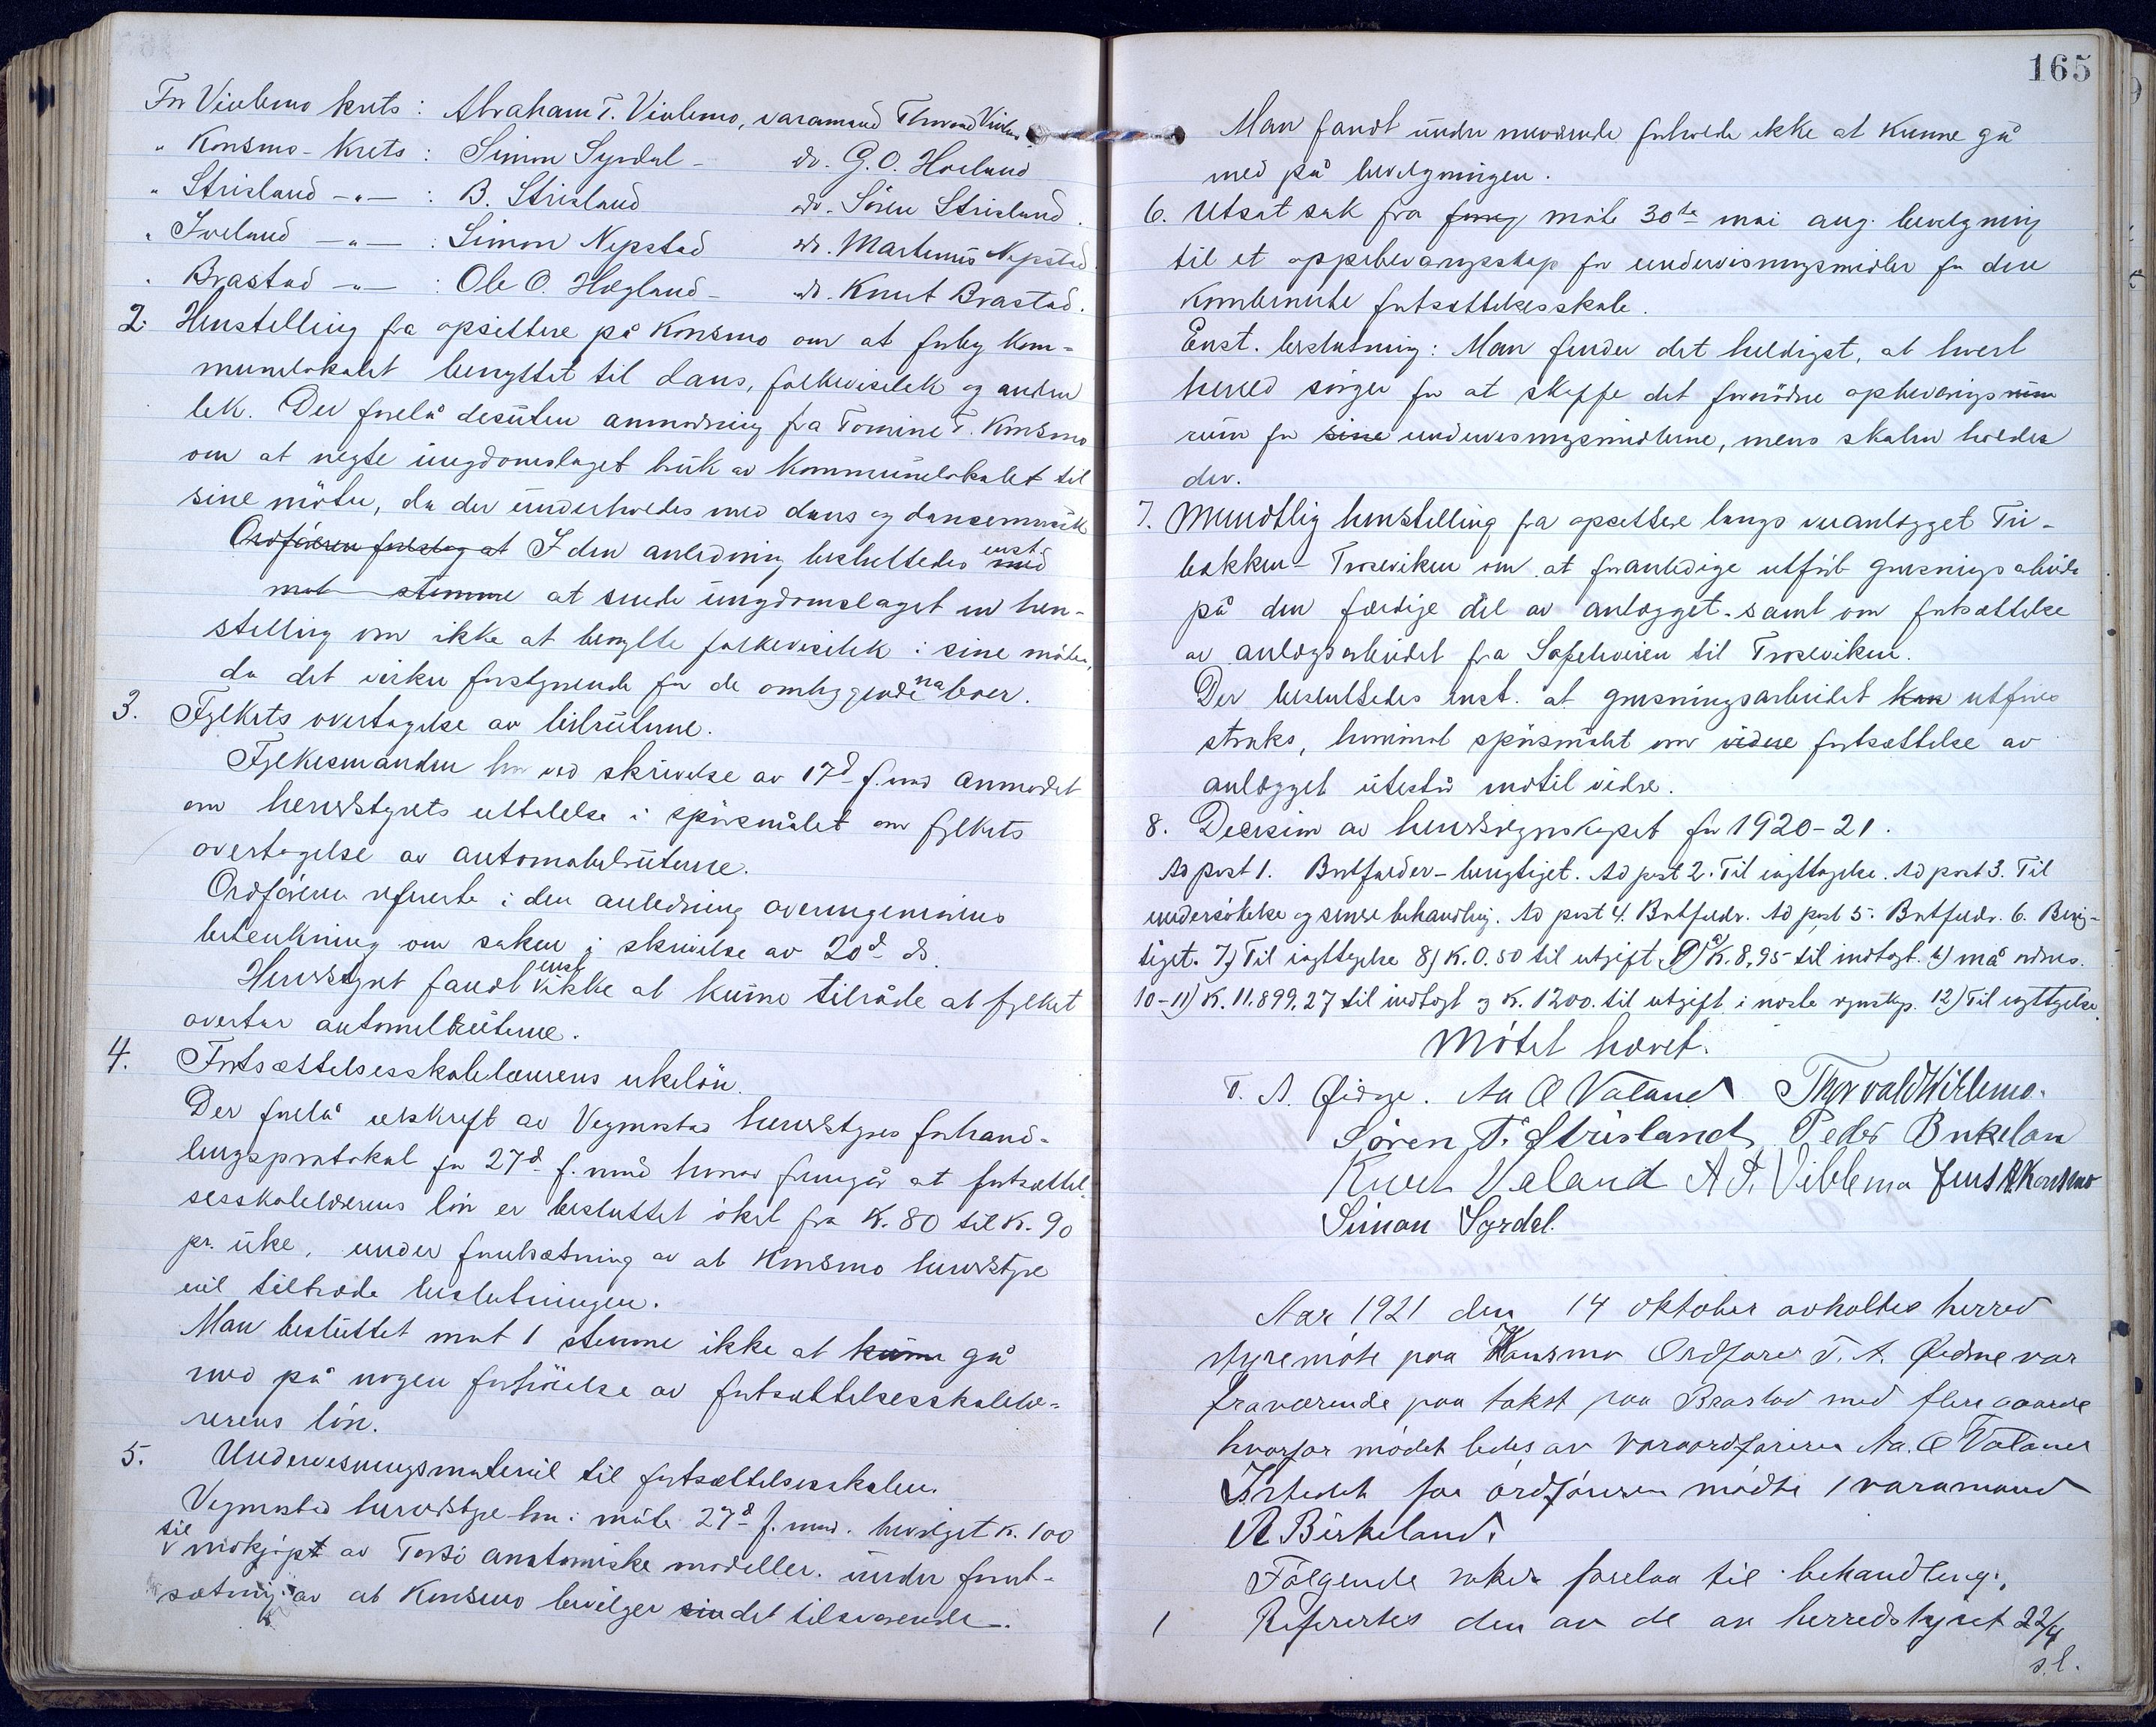 For Viblemo krets: Abraham T. Viblemo, varamand Thorvald Viblemo
" Konsmo-krets: Simon Syrdal - do. G. O. Hoeland
" Strisland -"-: B. Strisland do. Sören Strisland.
" Iveland -"-: Simon Nepstad do. Martinius Nepstad.
" Brastad -"-: Ole O. Hægland - do. Knut Brastad.
2. Henstilling fra opsittere på Konsmo om at forby kom-
munelokalet benyttet til dans, folkeviselek og anden
lek. Der forelå desuten anmodning fra Tomine T. Konsmo
om at negte ungdomslaget bruk av kommunelokalet til
sine möter, da der underholdes med dans og dansemusik
Ordföreren foreslog at I den anledning besluttedes enst. med
mot stemme at sende ungdomslaget en hen-
stilling om ikke at benytte folkeviselek i sine möter,
da det virker forstyrrende for de omliggende naboer.
3. Fylkets overtagelse av bilruterne.
Fylkesmanden har ved skrivelse av 17d f. md anmodet
om herredstyrets uttalelse i spörsmålet om fylkets
overtagelse av automobilruterne.
Ordföreren refererte i den anledning overingeniörens
betenkning om saken i skrivelse av 20d ds.
Herredstyret fandt enst. ikke at kunne tilråde at fylket
overtar automobilruterne.
4. Fortsættelsesskolelærerens ukelön.
Der forelå utskrift av Vegmostad herredstyres forhand-
lingsprotokol for 27d f. mnd hvorav fremgår at fortsættel-
sesskolelærerens lön er besluttet öket fra K. 80 til K. 90
pr. uke, under forutsætning av at Konsmo herredstyre
vil tiltræde beslutningen.
Man besluttet mot 1 stemme ikke at kunne gå
med på nogen forhöielse av fortsættelsesskolelæ-
rerens lön.
5. Undervisningsmateriel til fortsættelsesskolen.
Vegmostad herredstyre har i möte 27d f. mnd. bevilget K. 100
til indkjöpt av Torsö anatomiske modeller. under forut-
sætning av at Konsmo bevilger sin det tilsvarende.
165
Man fandt under nuværende forholde ikke at kunne gå
med på bevilgningen.
6. Utsat sak fra forrig möte 30te mai ang. bevilgning
til et oppebevaringsskap for undervisningsmidler for den
kombinerte fortsættelsesskole.
Enst. beslutning: Man finder det heldigst, at hvert
herred sörger for at skaffe det fornödne opbevarings rum
rum for sine undervisningsmidlerne, mens skolen holdes
der.
7. Mundtlig henstilling fra opsittere langs veianlægget Tri-
bakken - Troseviken om at foranledige utfört grusningsarbeide
på den færdige del av anlægget. samt om fortsættelse
av anlægsarbeidet fra til Troseviken.
Der besluttedes enst. at grusningsarbeidet kan utföres
straks, hvorimot spörsmålet om videre fortsættelse av
anlægget utestår indtil videre.
8. Decision av herredsregnskapet for 1920-21.
Ad post 1. Bortfalder - berigtiget. Ad post 2. Til iagttagelse. Ad post 3. Til
undersökelse og senere behandling. Ad post 4. Bortfalder. Ad post 5. Bortfalder. 6. Berig-
tiget. 7) Til iagttagelse 8) K. 0.50 til utgift. 9) a) K. 8,95 til indtægt. b) må ordnes.
10-11) K. 11.899,27 til indtægt og K. 1200. til utgift i næste regnskap. 12) Til iagttagelse.
Mötet hævet.
T. A. Øidne. Aa O Valand Thorvald Viblemo.
Sören T. Strisland Peder Birkeland
Knut Valand A. T. Viblemo Jens A. Konsmo
Simon Syrdal.
Aar 1921 den 14 oktober avholtes herred
styremöte paa Konsmo Ordförer T. A. Øidne var
fraværende paa takst paa Brastad med flere gaarde
hvorfor mödet ledes av varaordföreren Aa. O Valand
Istedet for ordföreren mödte 1 varamand
A Birkeland.
Fölgende saker forelaa til behandling.
1 Refererles den av de av herredstyret 22/4
s.l.